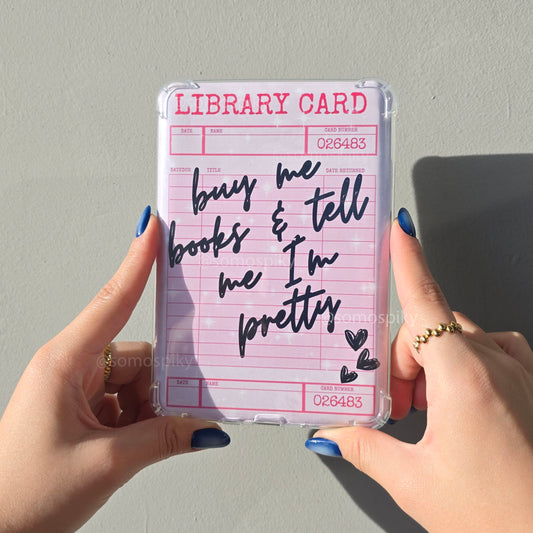 LIBRARY CARD
DATE NAME CARD NUMBER
026483
DATE DUE TITLE DATE RETURNED
buy me
books & tell
me I'm
pretty
@somospiky
@somospiky
@somospiky
DATE NAME CARD NUMBER
026483